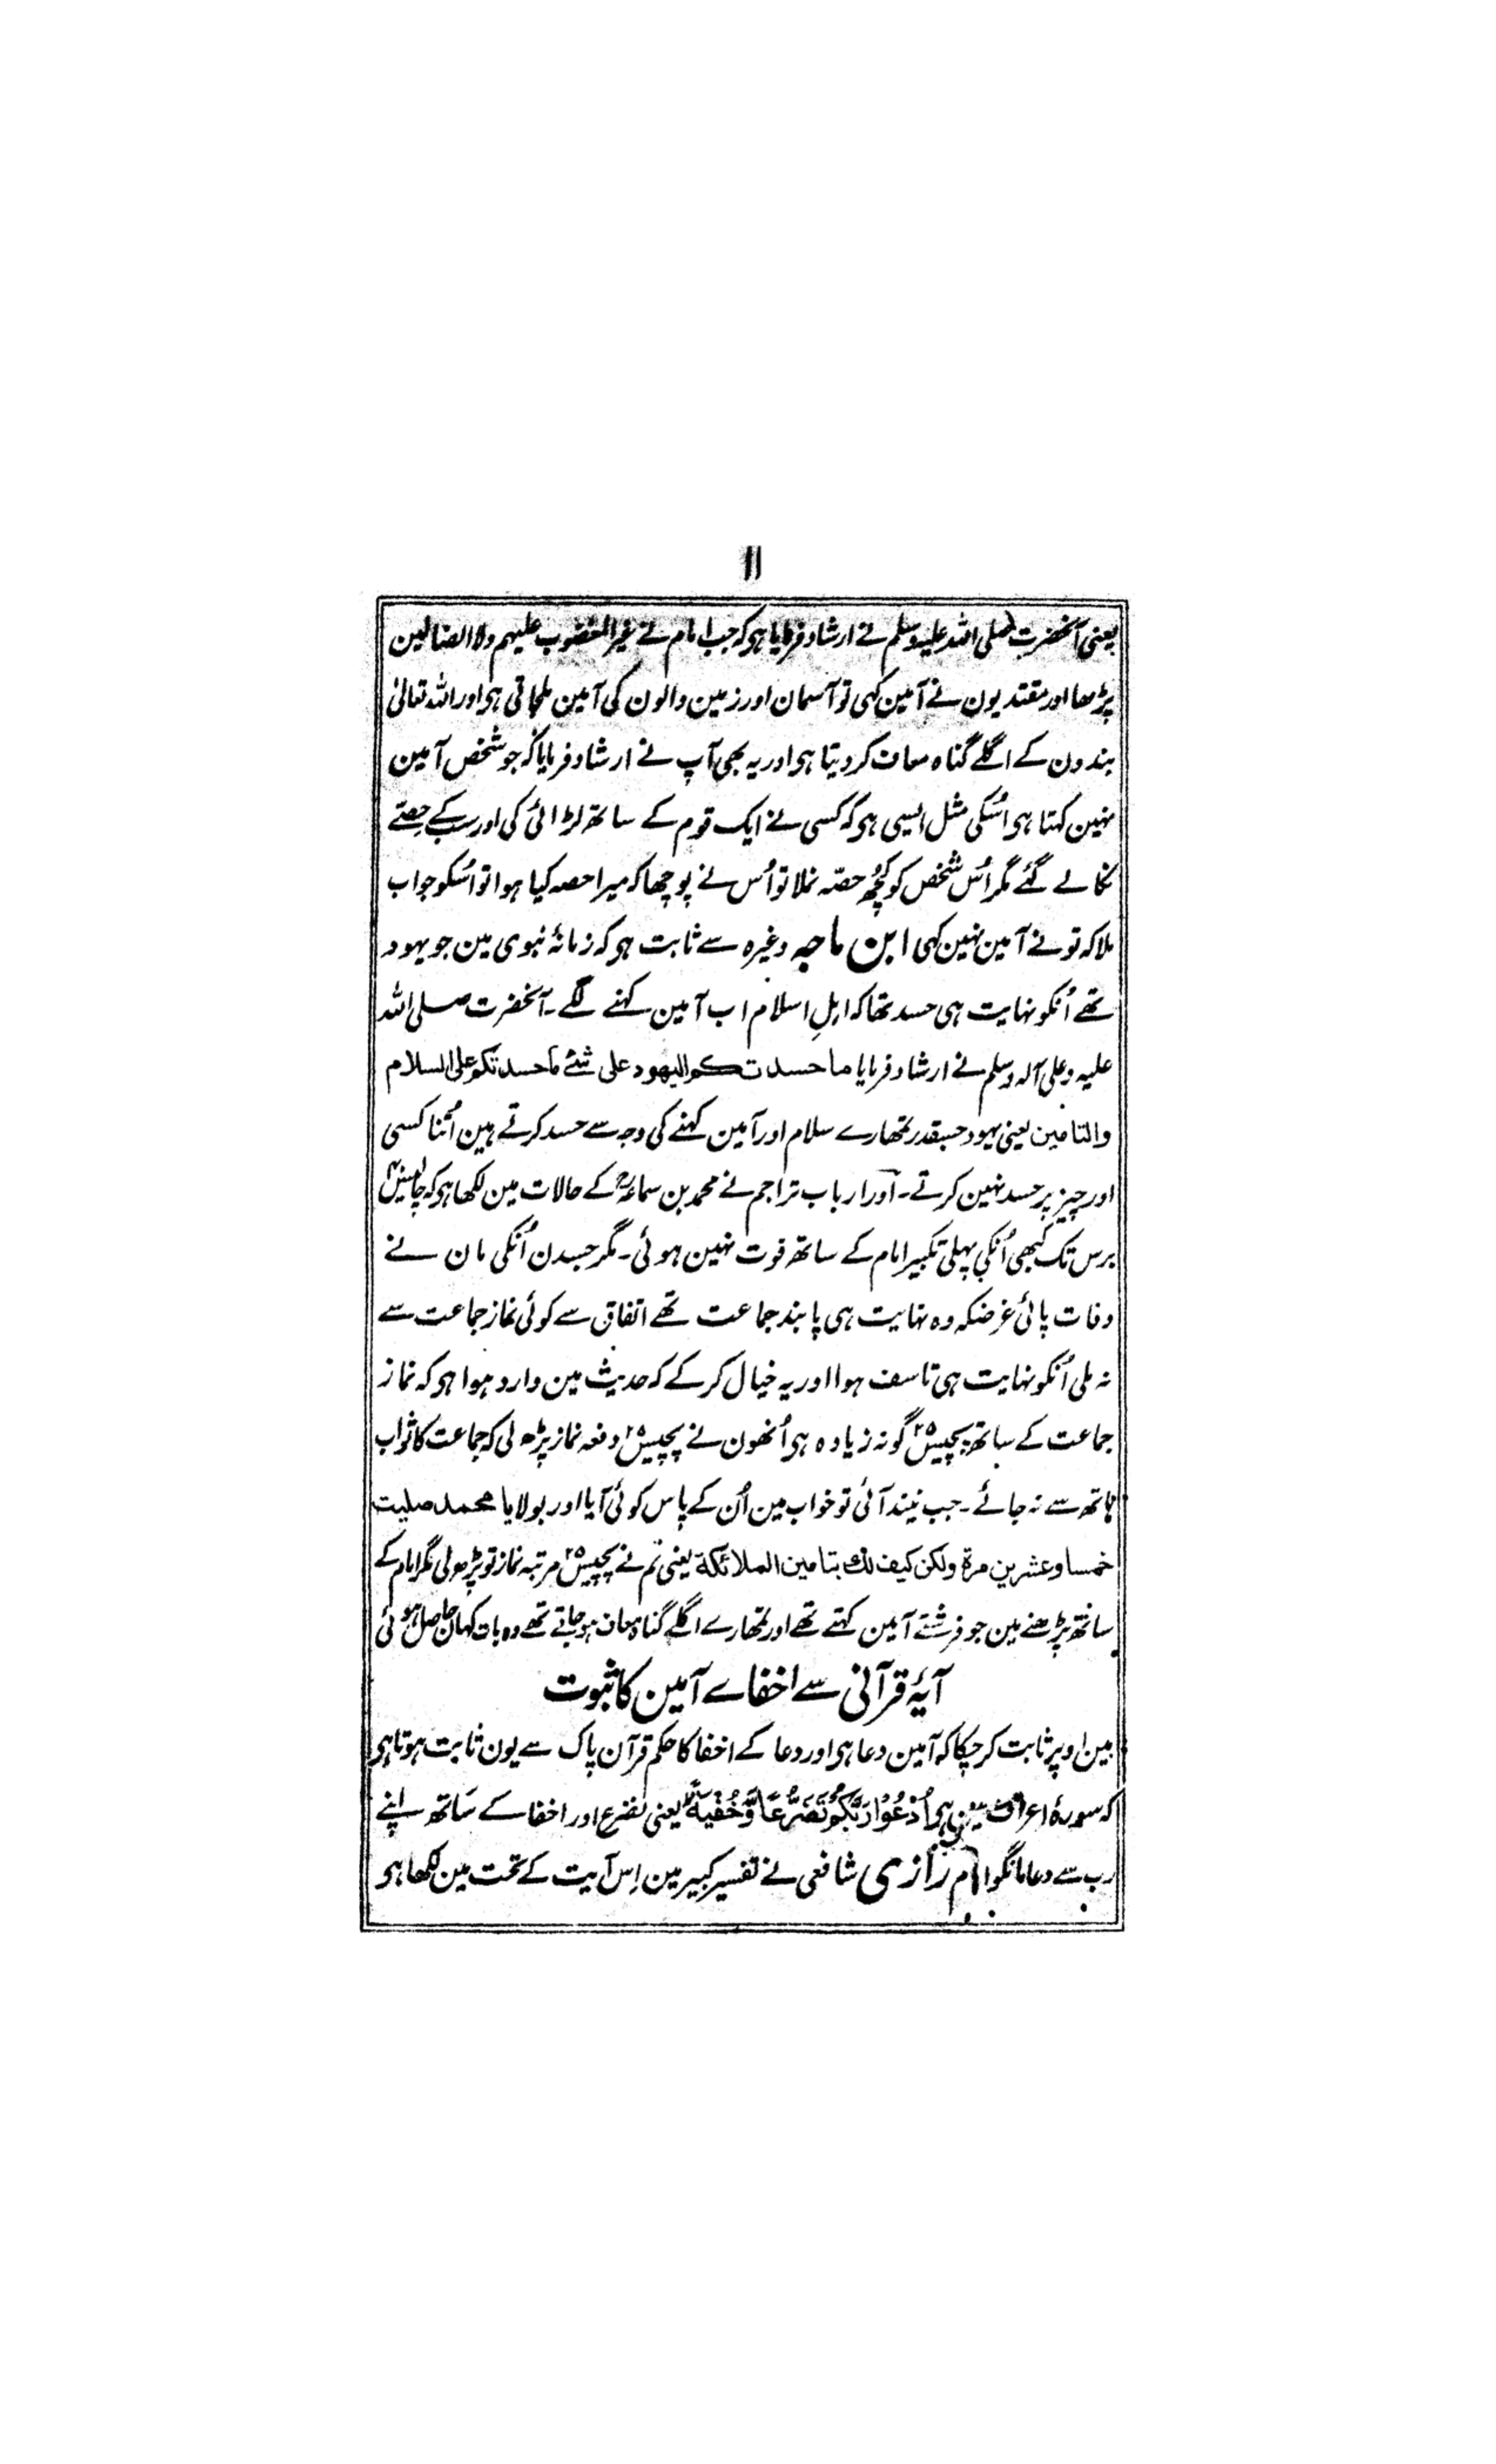 ۱۱
یعنی آنحضرت صلی اللہ علیہ وسلم نے ارشاد فرمایا ہی کہ جب امام نے غیر المغضوب علیہم ولا الضالین
پڑھا اور مقتدیون نے آمین کہی تو آسمان اور زمین والون کی آمین ملجاتی ہی اور اللہ تعالیٰ
بندون کے اگلے گناہ معاف کر دیتا ہی اور یہ بھی آپ نے ارشاد فرمایا کہ جو شخص آمین
نہین کہتا ہی اُسکی مثل ایسی ہی کہ کسی نے ایک قوم کے ساتھ لڑائی کی اور سب کے حصّے
نکالے گئے مگر اُس شخص کو کچھ حصّہ نملا تو اُس نے پوچھا کہ میرا حصہ کیا ہوا تو اُسکو جواب
ملا کہ تو نے آمین نہین کہی ابن ماجہ وغیرہ سے ثابت ہی کہ زمانۂ نبوی مین جو یہود
تھے اُنکو نہایت ہی حسد تھا کہ اہلِ اسلام اب آمین کہنے لگے۔ آنحضرت صلی اللہ
علیہ وعلی آلہ وسلم نے ارشاد فرمایا ما حسدتکم الیھود علی شئے ما حسدتکم علی السلام
والتامین یعنی یہود جسقدر تمھارے سلام اور آمین کہنے کی وجہ سے حسد کرتے ہین اُتنا کسی
اور چیز پر حسد نہین کرتے۔ اور ارباب تراجم نے محمد بن سماعہؒ کے حالات مین لکھا ہی کہ چالیس۴۰
برس تک کبھی اُنکی پہلی تکبیر امام کے ساتھ فوت نہین ہوئی۔ مگر جسدن اُنکی مان نے
وفات پائی غرضکہ وہ نہایت ہی پابند جماعت تھے اتفاق سے کوئی نماز جماعت سے
نہ ملی اُنکو نہایت ہی تاسف ہوا اور یہ خیال کر کے کہ حدیث مین وارد ہوا ہی کہ نماز
جماعت کے ساتھ پچیس۲۵ گونہ زیادہ ہی اُنھون نے پچیس۲۵ دفعہ نماز پڑھ لی کہ جماعت کا ثواب
ہاتھ سے نہ جائے۔ جب نیند آئی تو خواب مین اُن کے پاس کوئی آیا اور بولا یا محمد صلیت
خمسا وعشرین مرۃ ولکن کیف لك بتامین الملائکة یعنی تم نے پچیس۲۵ مرتبہ نماز تو پڑھ لی مگر امام کے
ساتھ پڑھنے مین جو فرشتے آمین کہتے تھے اور تمھارے اگلے گناہ معاف ہو جاتے تھے وہ بات کہان حاصل ہوئی
آیۂ قرآنی سے اخفاے آمین کا ثبوت
مین اوپر ثابت کر چکا کہ آمین دعا ہی اور دعا کے اخفا کا حکم قرآن پاک سے یون ثابت ہوتا ہی
کہ سورۂ اعراف مین ہی اُدْعُوْا رَبَّكُمْ تَضَرُّعًا وَّخُفْيَةً یعنی تضرع اور اخفا کے ساتھ اپنے
رب سے دعا مانگو امام رازی شافعی نے تفسیر کبیر مین اِس آیت کے تحت مین لکھا ہی